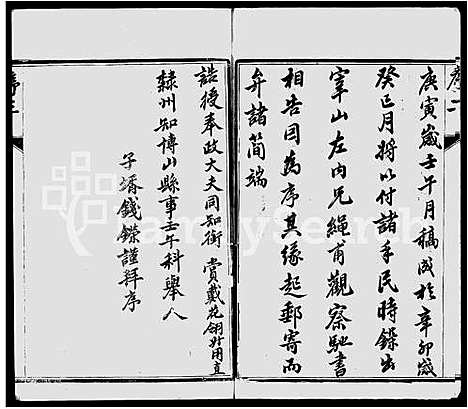 庚寅歲壬午月稿成於辛卯歲
癸正月將以付諸手民時鑅出
宰山左內兄繩甫觀察馳書
相告囙為序其緣起郵寄而
弁諸簡端
誥授奉政大夫同知銜賞戴花翎升用直
隸州知博山縣事壬午科舉人
子壻錢鑅謹拜序
FamilySearch